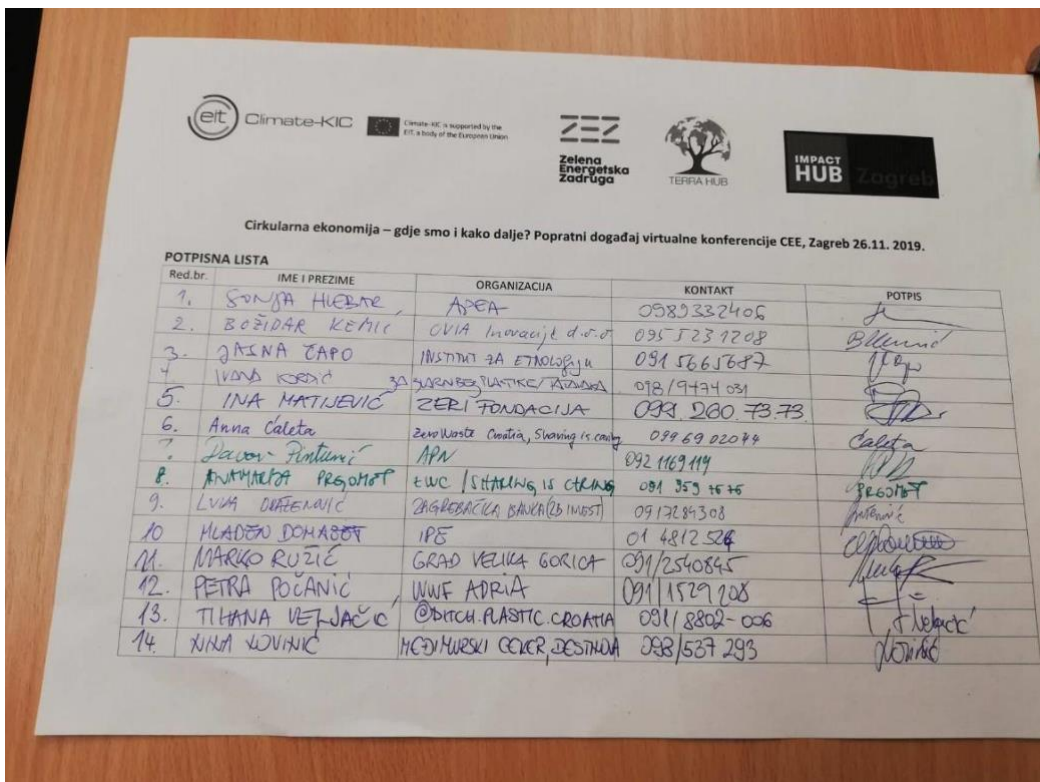 eit Climate-KIC
Climate-KIC is supported by the
EIT, a body of the European Union
ZEZ
Zelena
Energetska
Zadruga
TERRA HUB
IMPACT
HUB Zagreb
Cirkularna ekonomija – gdje smo i kako dalje? Popratni događaj virtualne konferencije CEE, Zagreb 26.11. 2019.
POTPISNA LISTA
Red.br. IME I PREZIME ORGANIZACIJA KONTAKT POTPIS
1. SONJA HLEBAR APEA 0989332406
2. BOŽIDAR KEMIĆ OVIA Inovacije d.o.o 0955231208
3. JASNA ČAPO INSTITUT ZA ETNOLOGIJU 0915665687
4 IVANA KORDIĆ ZA 098/9474 031
5. INA MATIJEVIĆ ZERI FONDACIJA 099 260 73 73
6. Anna Ćaleta Zero Waste Croatia, Sharing is caring Ćaleta
7. Davor APN 092 1169119
8. ANAMARIJA PRGOMET ZWC / SHARING IS CARING 091 959 7676 PRGOMET
9. ZAGREBAČKA BANKA (ZB INVEST) 0917289308
10 MLADEN DOMAZET IPE 01 4812 526
11. MARKO RUŽIĆ GRAD VELIKA GORICA 091/2540845
12. PETRA POČANIĆ WWF ADRIA 091/1529208
13. TIHANA VELJAČIĆ @DITCH.PLASTIC.CROATIA 091/8802-006
14. NINA MEĐIMURSKI CEKER, 098/537 293